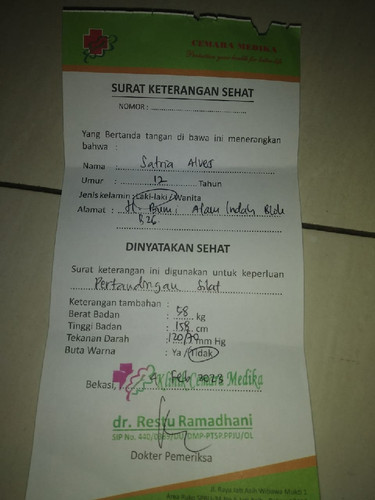 CEMARA MEDIKA
SURAT KETERANGAN SEHAT
NOMOR :
Yang Bertanda tangan di bawa ini menerangkan
bahwa :
Nama : Satria Alves
Umur : 12 Tahun
Jenis kelamin : Laki-laki / Wanita
Alamat : Jl. Bumi Alam Indah Blok
B26
DINYATAKAN SEHAT
Surat keterangan ini digunakan untuk keperluan
Pertandingan Silat
Keterangan tambahan :
Berat Badan : 58 kg
Tinggi Badan : 158 cm
Tekanan Darah : 120/70 mm Hg
Buta Warna : Ya / Tidak
Bekasi, 4 Feb 2023
Klinik Cemara Medika
dr. Restu Ramadhani
SIP No.
Dokter Pemeriksa